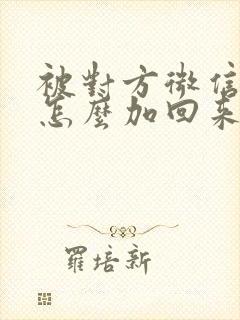 被對方微信
怎麼加回來
羅培新